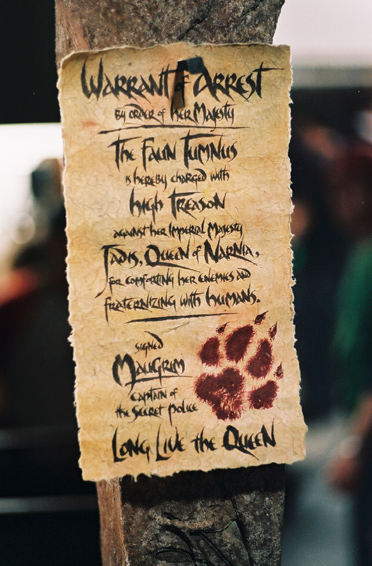 Warrant of Arrest
by order of her Majesty
The Faun Tumnus
is hereby charged with
high Treason
against her Imperial Majesty
Jadis, Queen of Narnia,
for comforting her enemies and
fraternizing with humans.
signed
Maugrim
Captain of
the Secret Police
Long Live the Queen